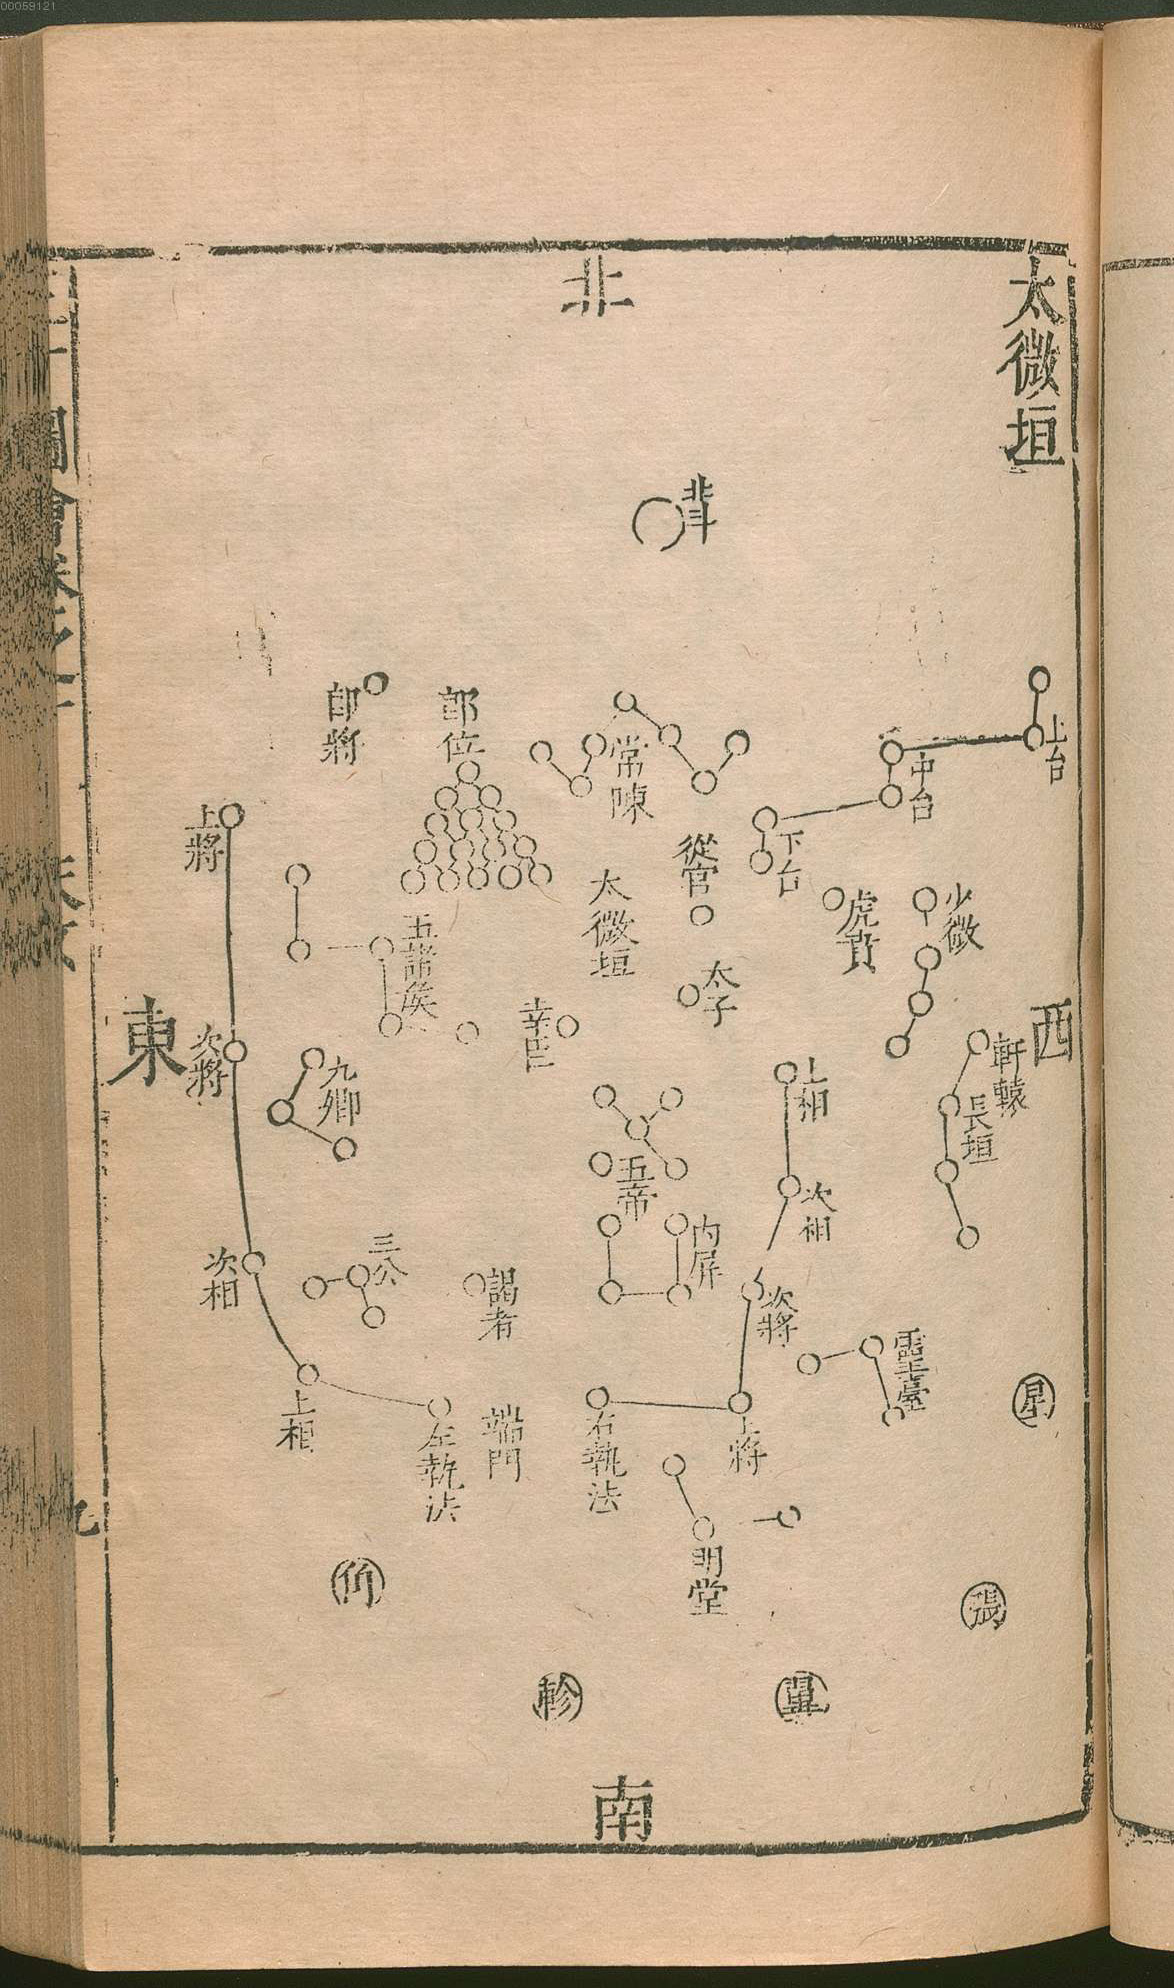 00059121
太微垣
北
北斗
上台
中台
下台
常陳
郎位
郎將
上將
從官
太微垣
虎賁
少微
太子
五諸侯
幸臣
西
東
次將
九卿
軒轅
長垣
上相
五帝
次相
內屏
三公
謁者
次相
次將
靈臺
上相
左執法
端門
右執法
上將
明堂
星
張
翼
軫
南
圖會卷之
九